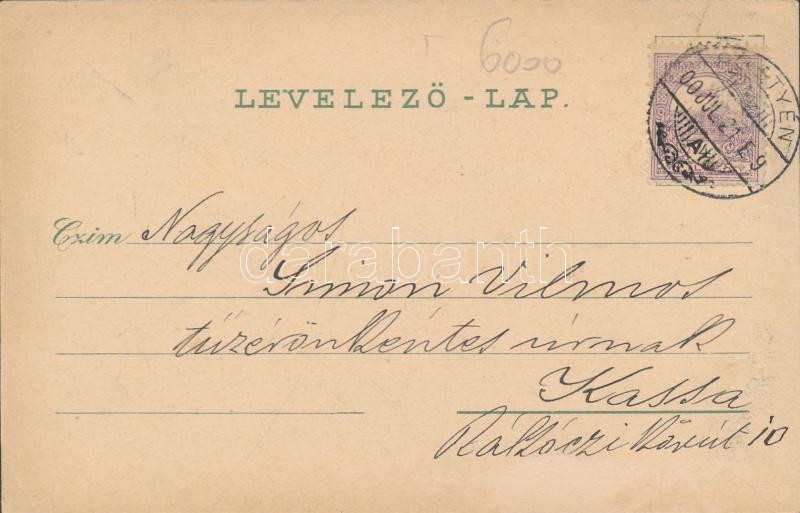 6000
LEVELEZÖ - LAP.
00 JUL. 21. E 9
Czim Nagyságos
Simon Vilmos
tüzérönkéntes úrnak
Kassa
Rákóczi körút 10
darabanth